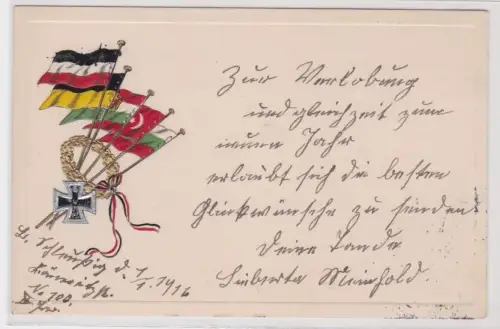 Zur Verlobung
und gleichzeit zum
neuen Jahr
erlaubt sich die besten
Glückwünsche zu senden
Deine Tande
Liberta Meinhold.
L. Schleußig d. 1/1. 1916
No 100